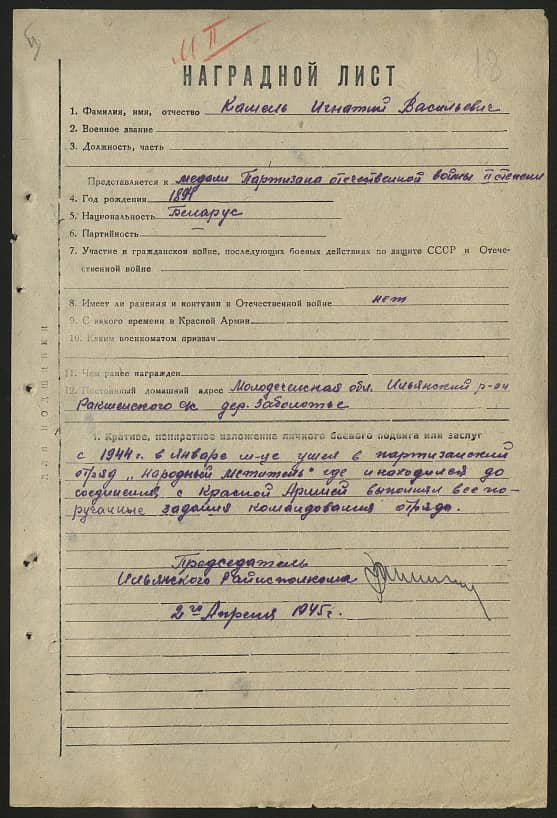 II
18
НАГРАДНОЙ ЛИСТ
1. Фамилия, имя, отчество Камель Игнатий Васильевич
2. Военное звание
3. Должность, часть
Представляется к медали Партизана отечественной войны II степени
4. Год рождения
5. Национальность Беларус
6. Партийность
7. Участие в гражданской войне, последующих боевых действиях по защите СССР и Отече-
ственной войне
8. Имеет ли ранения и контузии в Отечественной войне нет
9. С какого времени в Красной Армии
10. Каким военкоматом призван
11. Чем ранее награжден
12. Постоянный домашний адрес Молодеченская обл. Ильянский р-он
с/с дер. Заболотье
для подшивки
1. Краткое, конкретное изложение личного боевого подвига или заслуг
с 1944 г. в январе м-це ушел в партизанский
отряд „Народный мститель" где и находился до
соединения с Красной Армией выполнял все по-
ручанные задания командования отряда.
Председатель
Ильянского Райисполкома
2го Апреля 1945 г.